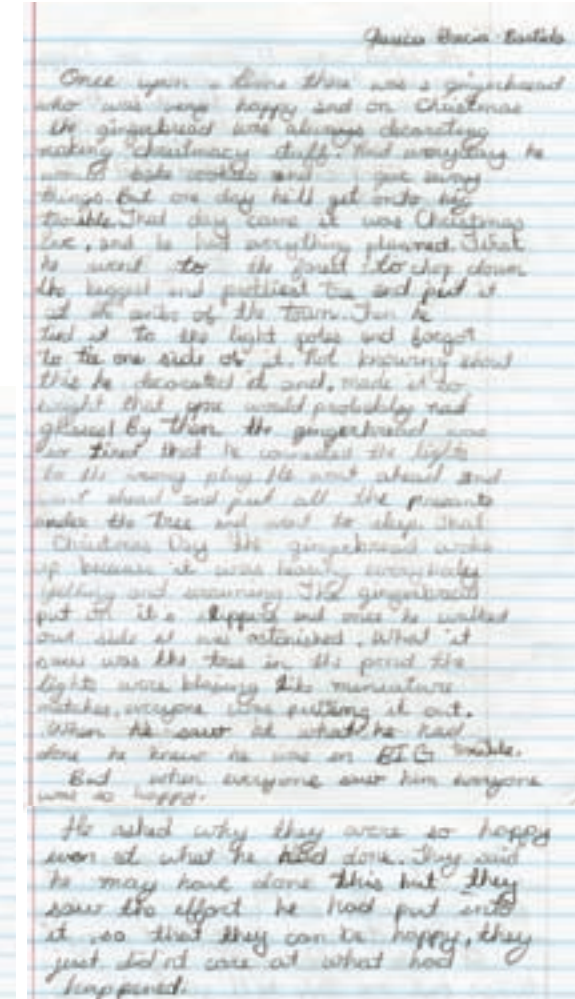 Once upon a time there was a gingerbread
who was very happy and on Christmas
the gingerbread was always decorating
making christmacy stuff. And everyday he
would bake cookies and give away
things. But one day he'll get onto big
trouble. That day came it was Christmas
Eve, and he had everything planned. First
he went to the forest to chop down
the biggest and prettiest tree and put it
at the of the town. Then he
tied it to the light poles and forgot
to tie one side of it. Not knowing about
this he decorated it and, made it so
bright that you would probably need
glasses! By then the gingerbread was
so tired that he connected the lights
to the wrong plug. He went ahead and
went ahead and put all the presents
under the tree and went to sleep. That
Christmas Day the gingerbread woke
up because it was hearing everybody
yelling and screaming. The gingerbread
put on it's slippers and once he walked
out side it was astonished. What it
saw was the tree in the pond the
lights were blazing like miniature
matches, everyone was putting it out.
When he saw at what he had
done he knew he was in BIG trouble.
But when everyone saw him everyone
was so happy.
He asked why they were so happy
even at what he had done. They said
he may have done this but they
saw the effort he had put into
it, so that they can be happy, they
just did'nt care at what had
happened.